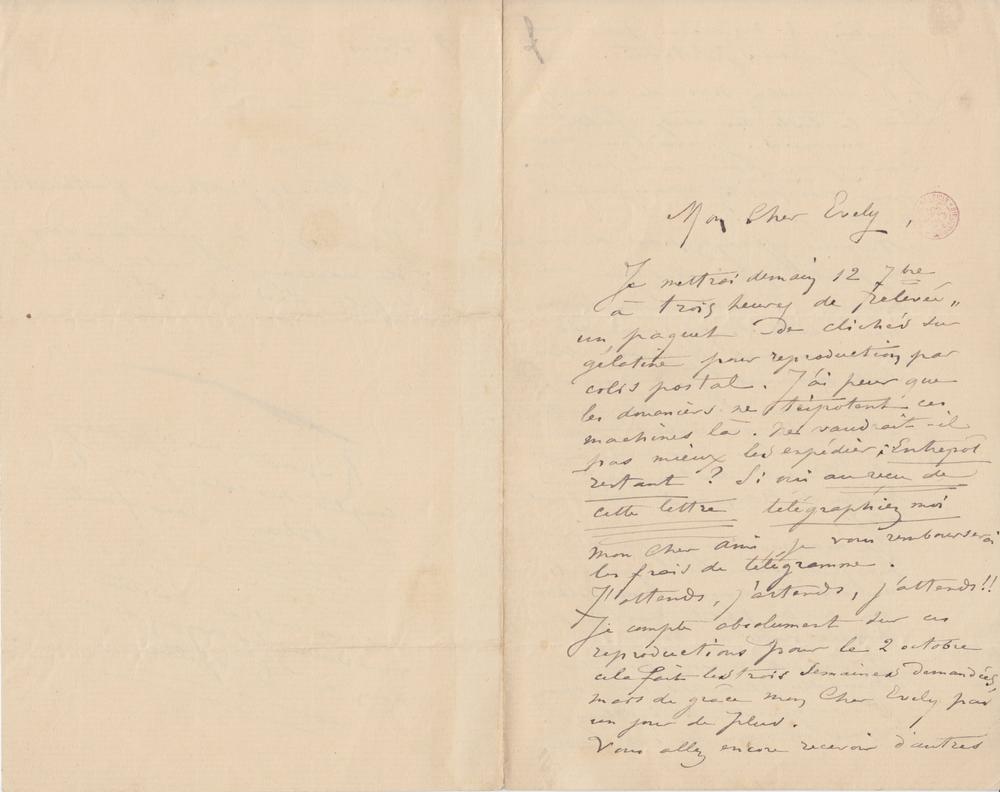 Mon Cher Evely,
Je mettrai demain 12 7bre
à trois heures de "relevée"
un paquet de clichés sur
gélatine pour reproduction par
colis postal. J'ai peur que
les douaniers ne tripotent ces
machines là. Ne vaudrait-il
pas mieux les expédier: Entrepôt
restant? Si oui au reçu de
cette lettre télégraphiez moi
mon cher ami, je vous rembourserai
les frais de télégramme.
J'attends, j'attends, j'attends!!
Je compte absolument sur ces
reproductions pour le 2 octobre
cela fait les trois semaines demandées,
mais de grâce mon Cher Evely pas
un jour de plus.
Vous allez encore recevoir d'autres